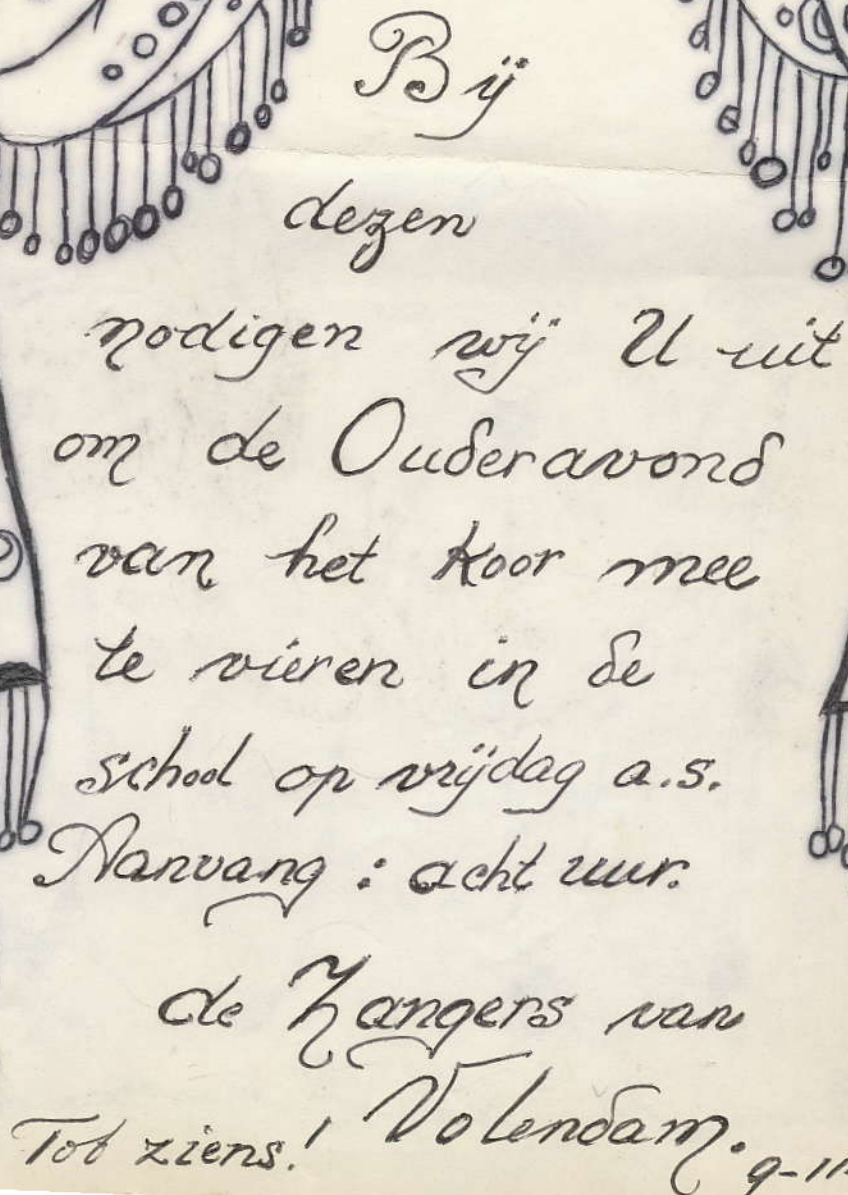 Bij
dezen
nodigen wij U uit
om de Ouderavond
van het Koor mee
te vieren in de
school op vrijdag a.s.
Aanvang : acht uur.
de Zangers van
Volendam.
Tot ziens! 9-11